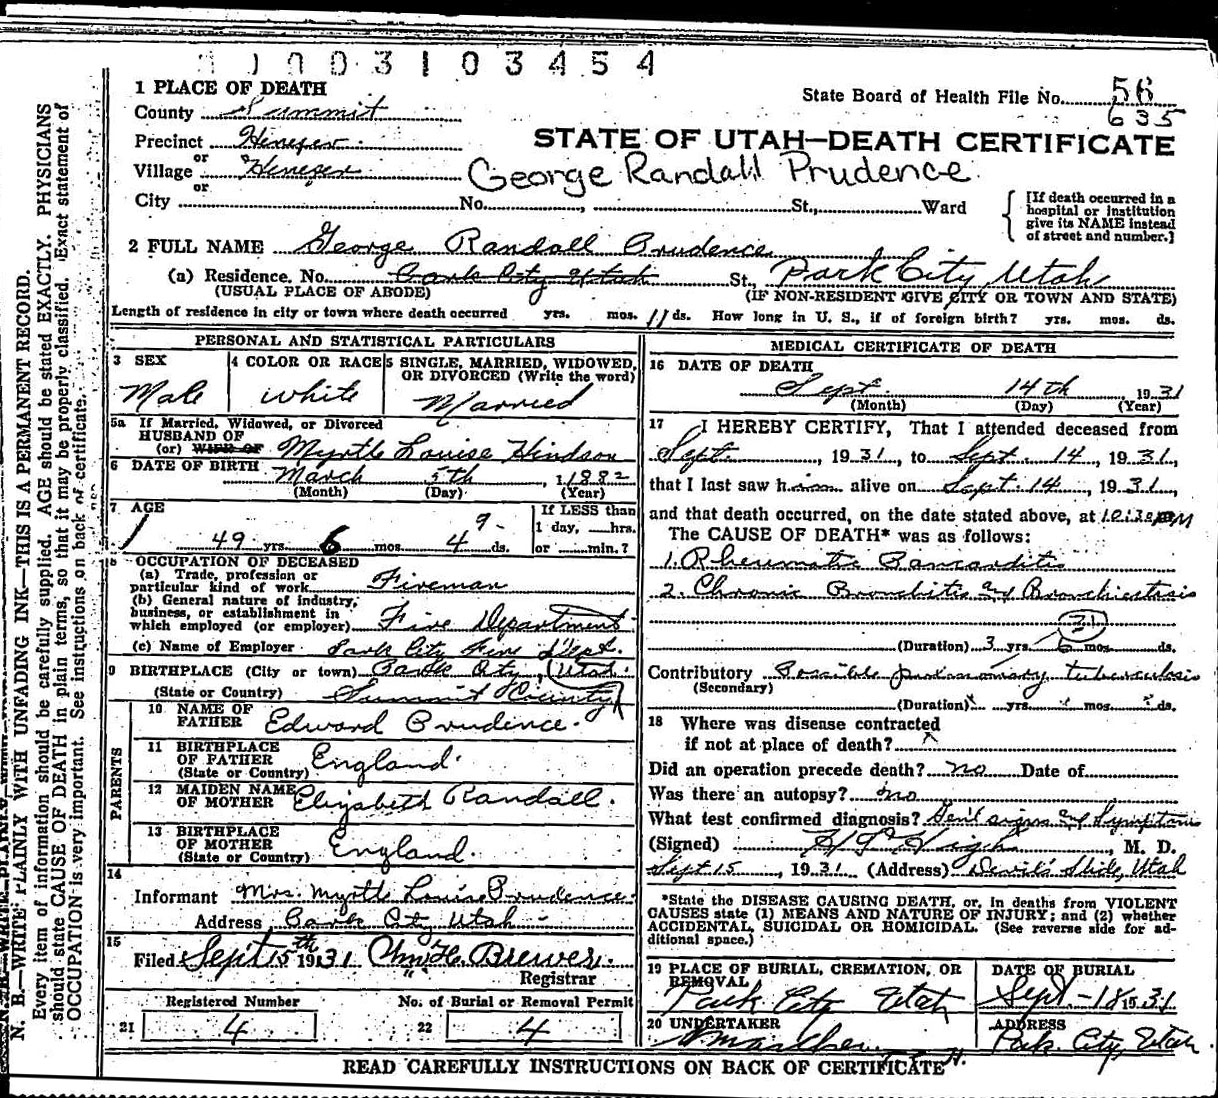 0003103454
1 PLACE OF DEATH
State Board of Health File No. 56
635
County Summit
Precinct Henefer
STATE OF UTAH—DEATH CERTIFICATE
or
Village Henefer
George Randall Prudence
or
City No. , St., Ward
[If death occurred in a hospital or institution give its NAME instead of street and number.]
2 FULL NAME George Randall Prudence
(a) Residence. No. Park City Utah St., Park City, Utah
(USUAL PLACE OF ABODE) (IF NON-RESIDENT GIVE CITY OR TOWN AND STATE)
Length of residence in city or town where death occurred yrs. mos. 11 ds. How long in U. S., if of foreign birth? yrs. mos. ds.
PERSONAL AND STATISTICAL PARTICULARS
3 SEX
Male
4 COLOR OR RACE
White
5 SINGLE, MARRIED, WIDOWED, OR DIVORCED (Write the word)
Married
5a If Married, Widowed, or Divorced
HUSBAND OF
(or) WIFE OF Myrtle Louise Hindson
6 DATE OF BIRTH March 5th, 1882
(Month) (Day) (Year)
7 AGE
49 yrs. 6 mos. 4 9 ds.
If LESS than
1 day, hrs.
or min.?
8 OCCUPATION OF DECEASED
(a) Trade, profession or
particular kind of work Fireman
(b) General nature of industry,
business, or establishment in
which employed (or employer) Fire Department
(c) Name of Employer Park City Fire Dept.
9 BIRTHPLACE (City or town) Park City, Utah.
(State or Country) Summit County
PARENTS
10 NAME OF
FATHER Edward Prudence.
11 BIRTHPLACE
OF FATHER
(State or Country) England.
12 MAIDEN NAME
OF MOTHER Elizabeth Randall.
13 BIRTHPLACE
OF MOTHER
(State or Country) England.
14
Informant Mrs. Myrtle Louise Prudence.
Address Park City Utah
15
Filed Sept 15th 1931 Chm. H. Brewer.
Registrar
Registered Number No. of Burial or Removal Permit
21 4 22 4
MEDICAL CERTIFICATE OF DEATH
16 DATE OF DEATH
Sept. 14th 1931
(Month) (Day) (Year)
17 I HEREBY CERTIFY, That I attended deceased from
Sept. , 1931, to Sept. 14, 1931,
that I last saw him alive on Sept. 14, 1931,
and that death occurred, on the date stated above, at 10:30 PM
The CAUSE OF DEATH* was as follows:
1. Rheumatic Pancarditis
2. Chronic Bronchitis and Bronchiectasis
31
(Duration) 3 yrs. 6 mos. ds.
Contributory Possible pulmonary tuberculosis
(Secondary)
(Duration) ? yrs. ? mos. ? ds.
18 Where was disease contracted
if not at place of death?
Did an operation precede death? no Date of
Was there an autopsy? no
What test confirmed diagnosis? Gen'l signs and symptoms
(Signed) , M. D.
Sept 15, 1931. (Address) Devil's Slide, Utah
*State the DISEASE CAUSING DEATH, or, in deaths from VIOLENT
CAUSES state (1) MEANS AND NATURE OF INJURY; and (2) whether
ACCIDENTAL, SUICIDAL OR HOMICIDAL. (See reverse side for ad-
ditional space.)
19 PLACE OF BURIAL, CREMATION, OR
REMOVAL
Park City Utah
DATE OF BURIAL
Sept - 18 1931
20 UNDERTAKER
ADDRESS
Park City, Utah.
READ CAREFULLY INSTRUCTIONS ON BACK OF CERTIFICATE
N. B.—WRITE PLAINLY WITH UNFADING INK—THIS IS A PERMANENT RECORD.
Every item of information should be carefully supplied. AGE should be stated EXACTLY. PHYSICIANS
should state CAUSE OF DEATH in plain terms, so that it may be properly classified. Exact statement of
OCCUPATION is very important. See instructions on back of certificate.